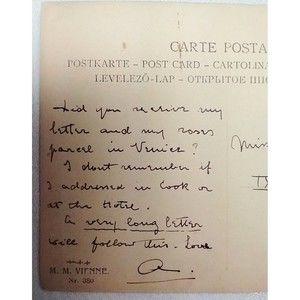 CARTE POSTA
POSTKARTE - POST CARD - CARTOLINA
LEVELEZŐ-LAP - ОТКРЫТОЕ ПИС
Did you receive my
letter and my roses
parcel in Venice?
I dont remember if
I addressed in Cook or
at the Hotel.
A very long letter
will follow this. Love
A.
Miss
M. M. VIENNE.
Nr. 380